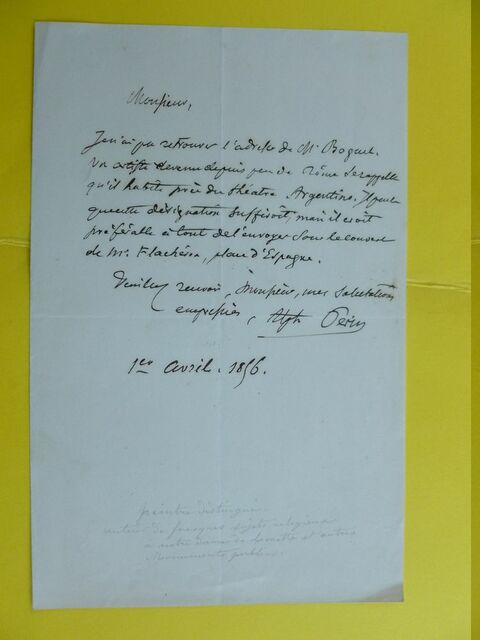 Monsieur,
Je n'ai pu retrouver l'adresse de Mr Boguet.
Un artiste devenu depuis peu de Rôme se rappelle
qu'il habite près du théatre Argentino. Il peut
que cette désignation suffiroit, mais il seroit
préférable à tout de l'envoyer sous le couvert
de Mr. Flachéron, place d'Espagne.
Veuillez recevoir, Monsieur, mes salutations
empressées, Alph Perin
1er avril. 1856.
peintre distingué.
auteur de fresques sujets religieux
a notre dame de Lorette et autres
Monuments publics.